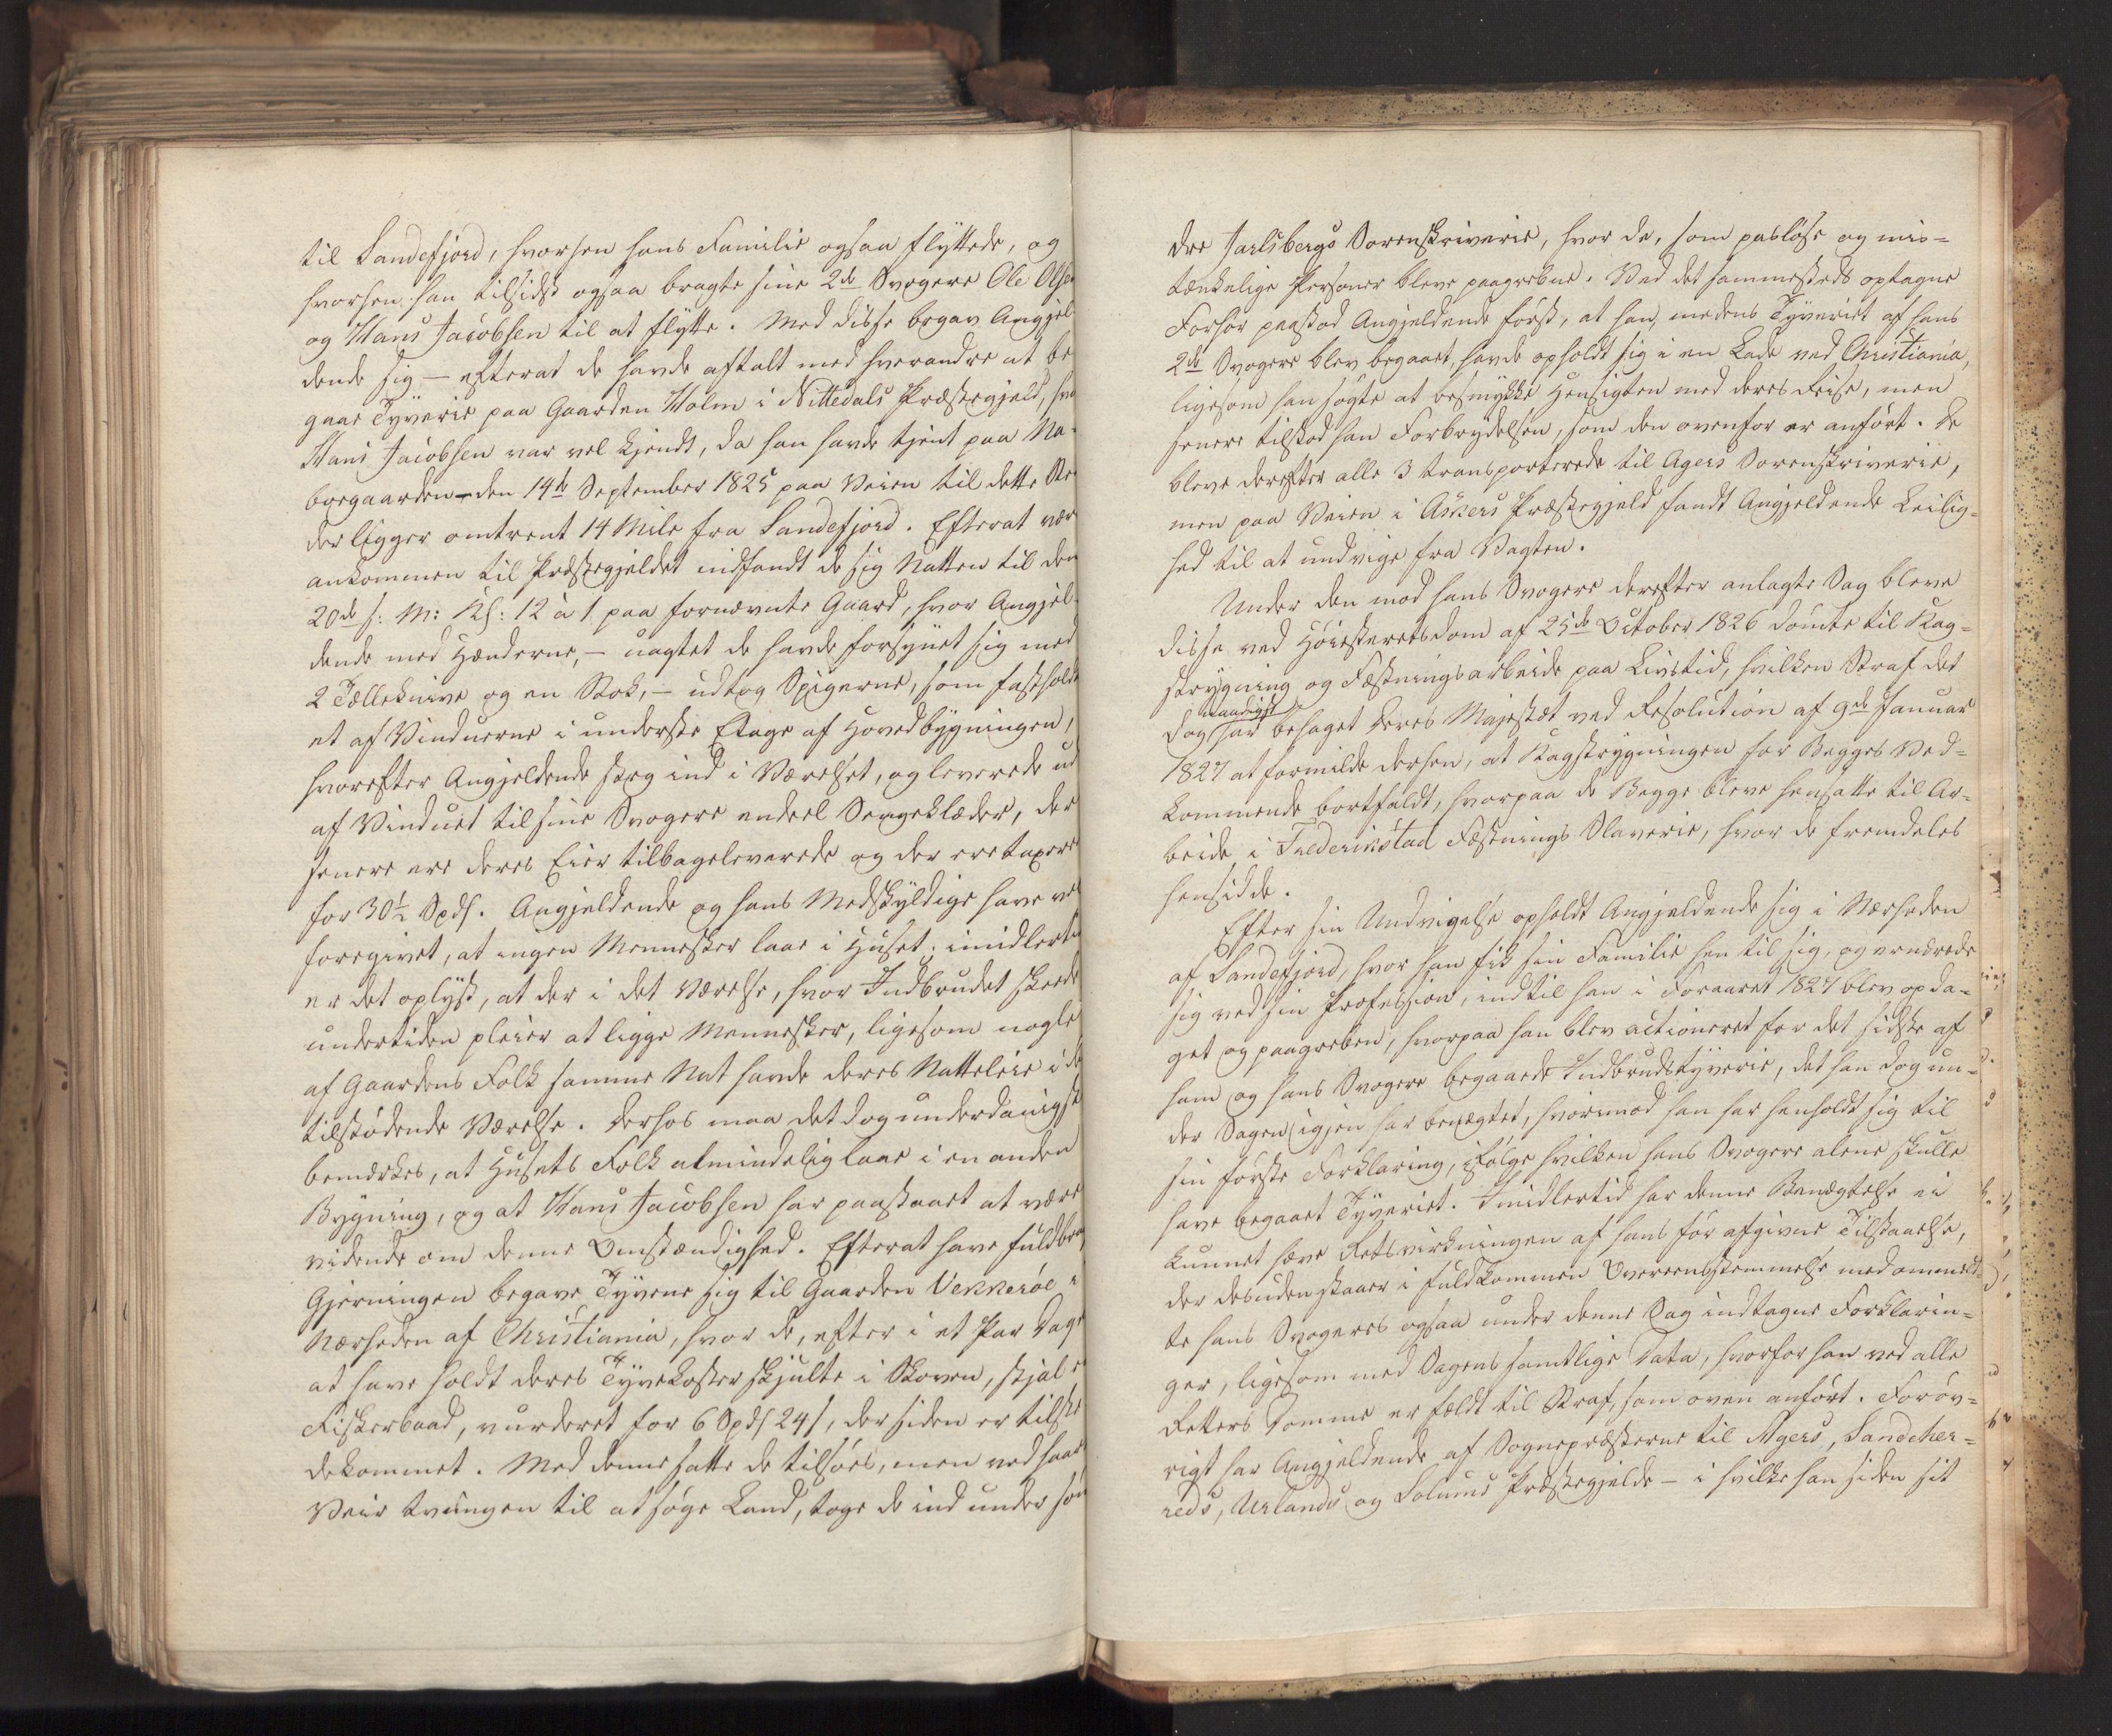 til Sandefjord, hvorhen hans Familie ogsaa flyttede, og
hvorhen han tilsidst ogsaa bragte sine 2de Svogere Ole Olsen
og Hans Jacobsen til at flytte. Med disse begav Angjel-
dende sig — efterat de havde aftalt med hverandre at be-
gaae Tyverie paa Gaarden Holm i Nittedals Præstegjeld, hvor
Hans Jacobsen var vel kjendt, da han havde tjent paa Na-
boegaarden — den 14de September 1825 paa Veien til dette Sted
der ligger omtrent 14 Mile fra Sandefjord. Efterat være
ankommen til Præstegjeldet indfandt de sig Natten til den
20de s: M: Kl: 12 à 1 paa fornævnte Gaard, hvor Angjel-
dende med Hænderne, — uagtet de havde forsynet sig med
2 Tælleknive og en Stok, — udtog Spigerne, som fastholdt
et af Vinduerne i underste Etage af Hovedbygningen,
hvorefter Angjeldende steg ind i Værelset, og leverede ud
af Vinduet til sine Svogere endeel Sengeklæder, der
senere ere deres Eier tilbageleverede og der ere taxerede
for 30½ Spdl. Angjeldende og hans Medskyldige have vel
foregivet, at ingen Mennesker laae i Huset; imidlertid
er det oplyst, at der i det Værelse, hvor Indbrudet skeede
undertiden pleier at ligge Mennesker, ligesom nogle
af Gaardens Folk samme Nat havde deres Natteleie i det
tilstødende Værelse. Derhos maa det dog underdanigst
bemærkes, at Husets Folk almindelig laae i en anden
Bygning, og at Hans Jacobsen har paastaaet at være
vidende om denne Omstændighed. Efterat have fuldbragt
Gjerningen begave Tyvene sig til Gaarden Vekkerøe i
Nærheden af Christiania, hvor de, efter i et Par Dage
at have holdt deres Tyvekoster skjulte i Skoven, stjal en
Fiskerbaad, vurderet for 6 Spdl 24 s, der siden er tilste-
dekommet. Med denne satte de tilsøes, men ved haardt
Veir tvungen til at søge Land, toge de ind under søn-
dre Jarlsbergs Sorenskriverie, hvor de, som pasløse og mis-
tænkelige Personer bleve paagrebne. Ved det sammesteds optagne
Forhør paastod Angjeldende først, at han, medens Tyveriet af hans
2de Svogere blev begaaet, havde opholdt sig i en Lade ved Christiania,
ligesom han søgte at besmykke Hensigten med deres Reise, men
senere tilstod han Forbrydelsen, som den ovenfor er anført. De
bleve derefter alle 3 transporterede til Agers Sorenskriverie,
men paa Veien i Askers Præstegjeld fandt Angjeldende Leilig-
hed til at undvige fra Vagten.
Under den mod hans Svogere derefter anlagte Sag bleve
disse ved Høiesteretsdom af 25de October 1826 dømte til Kag-
strygning og Fæstningsarbeide paa Livstid, hvilken Straf det
naadigst
dog har behaget Deres Majestæt ved Resolution af 9de Januar
1827 at formilde derhen, at Kagstrygningen for Begges Ved-
kommende bortfaldt, hvorpaa de Begge bleve hensatte til Ar-
beide i Frederikstad Fæstnings Slaverie, hvor de fremdeles
hensidde.
Efter sin Undvigelse opholdt Angjeldende sig i Nærheden
af Sandefjord, hvor han fik sin Familie hen til sig, og ernærede
sig ved sin Profession, indtil han i Foraaret 1827 blev opda-
get og paagreben, hvorpaa han blev actioneret for det sidste af
ham og hans Svogere begaaede Indbrudstyverie, det han dog un-
der Sagen igjen har benægtet, hvorimod han har henholdt sig til
sin første Forklaring, ifølge hvilken hans Svogere alene skulle
have begaaet Tyveriet. Imidlertid har denne Benægtelse ei
kunnet hæve Retsvirkningen af hans før afgivne Tilstaaelse,
der desuden staaer i fuldkommen Overeensstemmelse med ommeld-
te hans Svogeres ogsaa under denne Sag indtagne Forklarin-
ger, ligesom med Sagens samtlige Data, hvorfor han ved alle
Retters Domme er fældt til Straf, som oven anført. Forøv-
rigt har Angjeldende af Sognepræsterne til Agers, Sandeher-
reds, Urlands og Solums Præstegjelde — i hvilke han siden sit